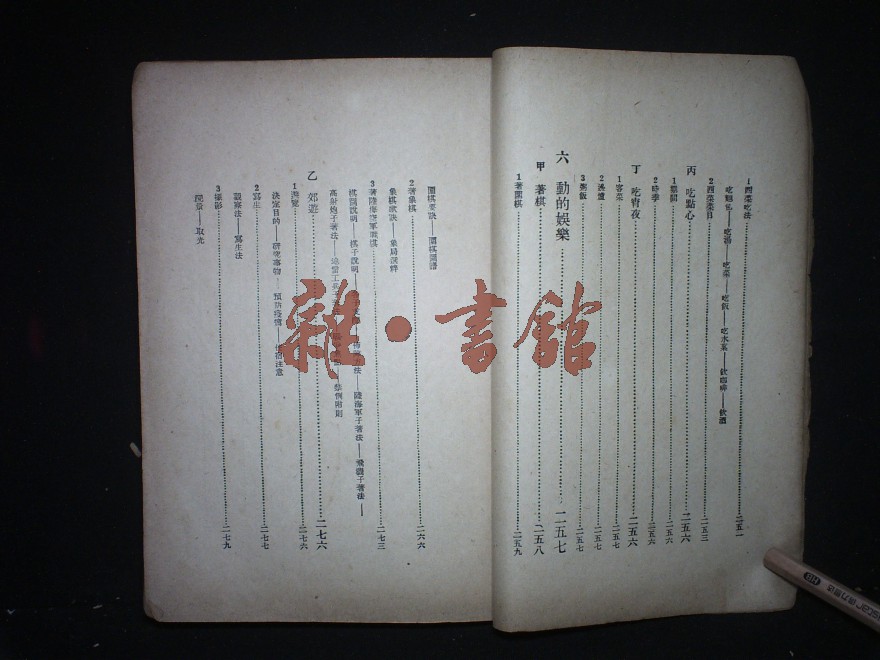 1西菜吃法……二五一
吃麵包——吃湯——吃菜——吃飯——吃水菓——飲咖啡——飲酒
2西菜菜目……二五三
丙 吃點心……二五六
2時季……二五六
丁 吃宵夜……二五六
1客菜……二五七
2洗爐……二五七
3熬飯……二五七
六 動的娛樂……二五七
甲 著棋……二五八
1著圍棋……二五九
圍棋要訣——圍棋圍譜
2著象棋……二六六
象棋歌訣——象局演粹
3著陸海空軍戰棋……二七三
棋制說明——棋子說明——陸海軍子著法——飛機子著法——
高射炮子著法——禁例附則
乙 郊遊……二七六
1遊覽……二七六
決定目的——研究事物——預防疫癘——注意
2寫生……二七七
觀察法——寫生法
3攝影……二七九
配景——取光
雜·書館
HB